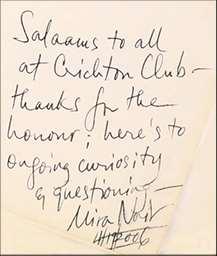 Salaams to all
at Crichton Club –
thanks for the
honour; here's to
ongoing curiosity
& questioning –
Mira Nair